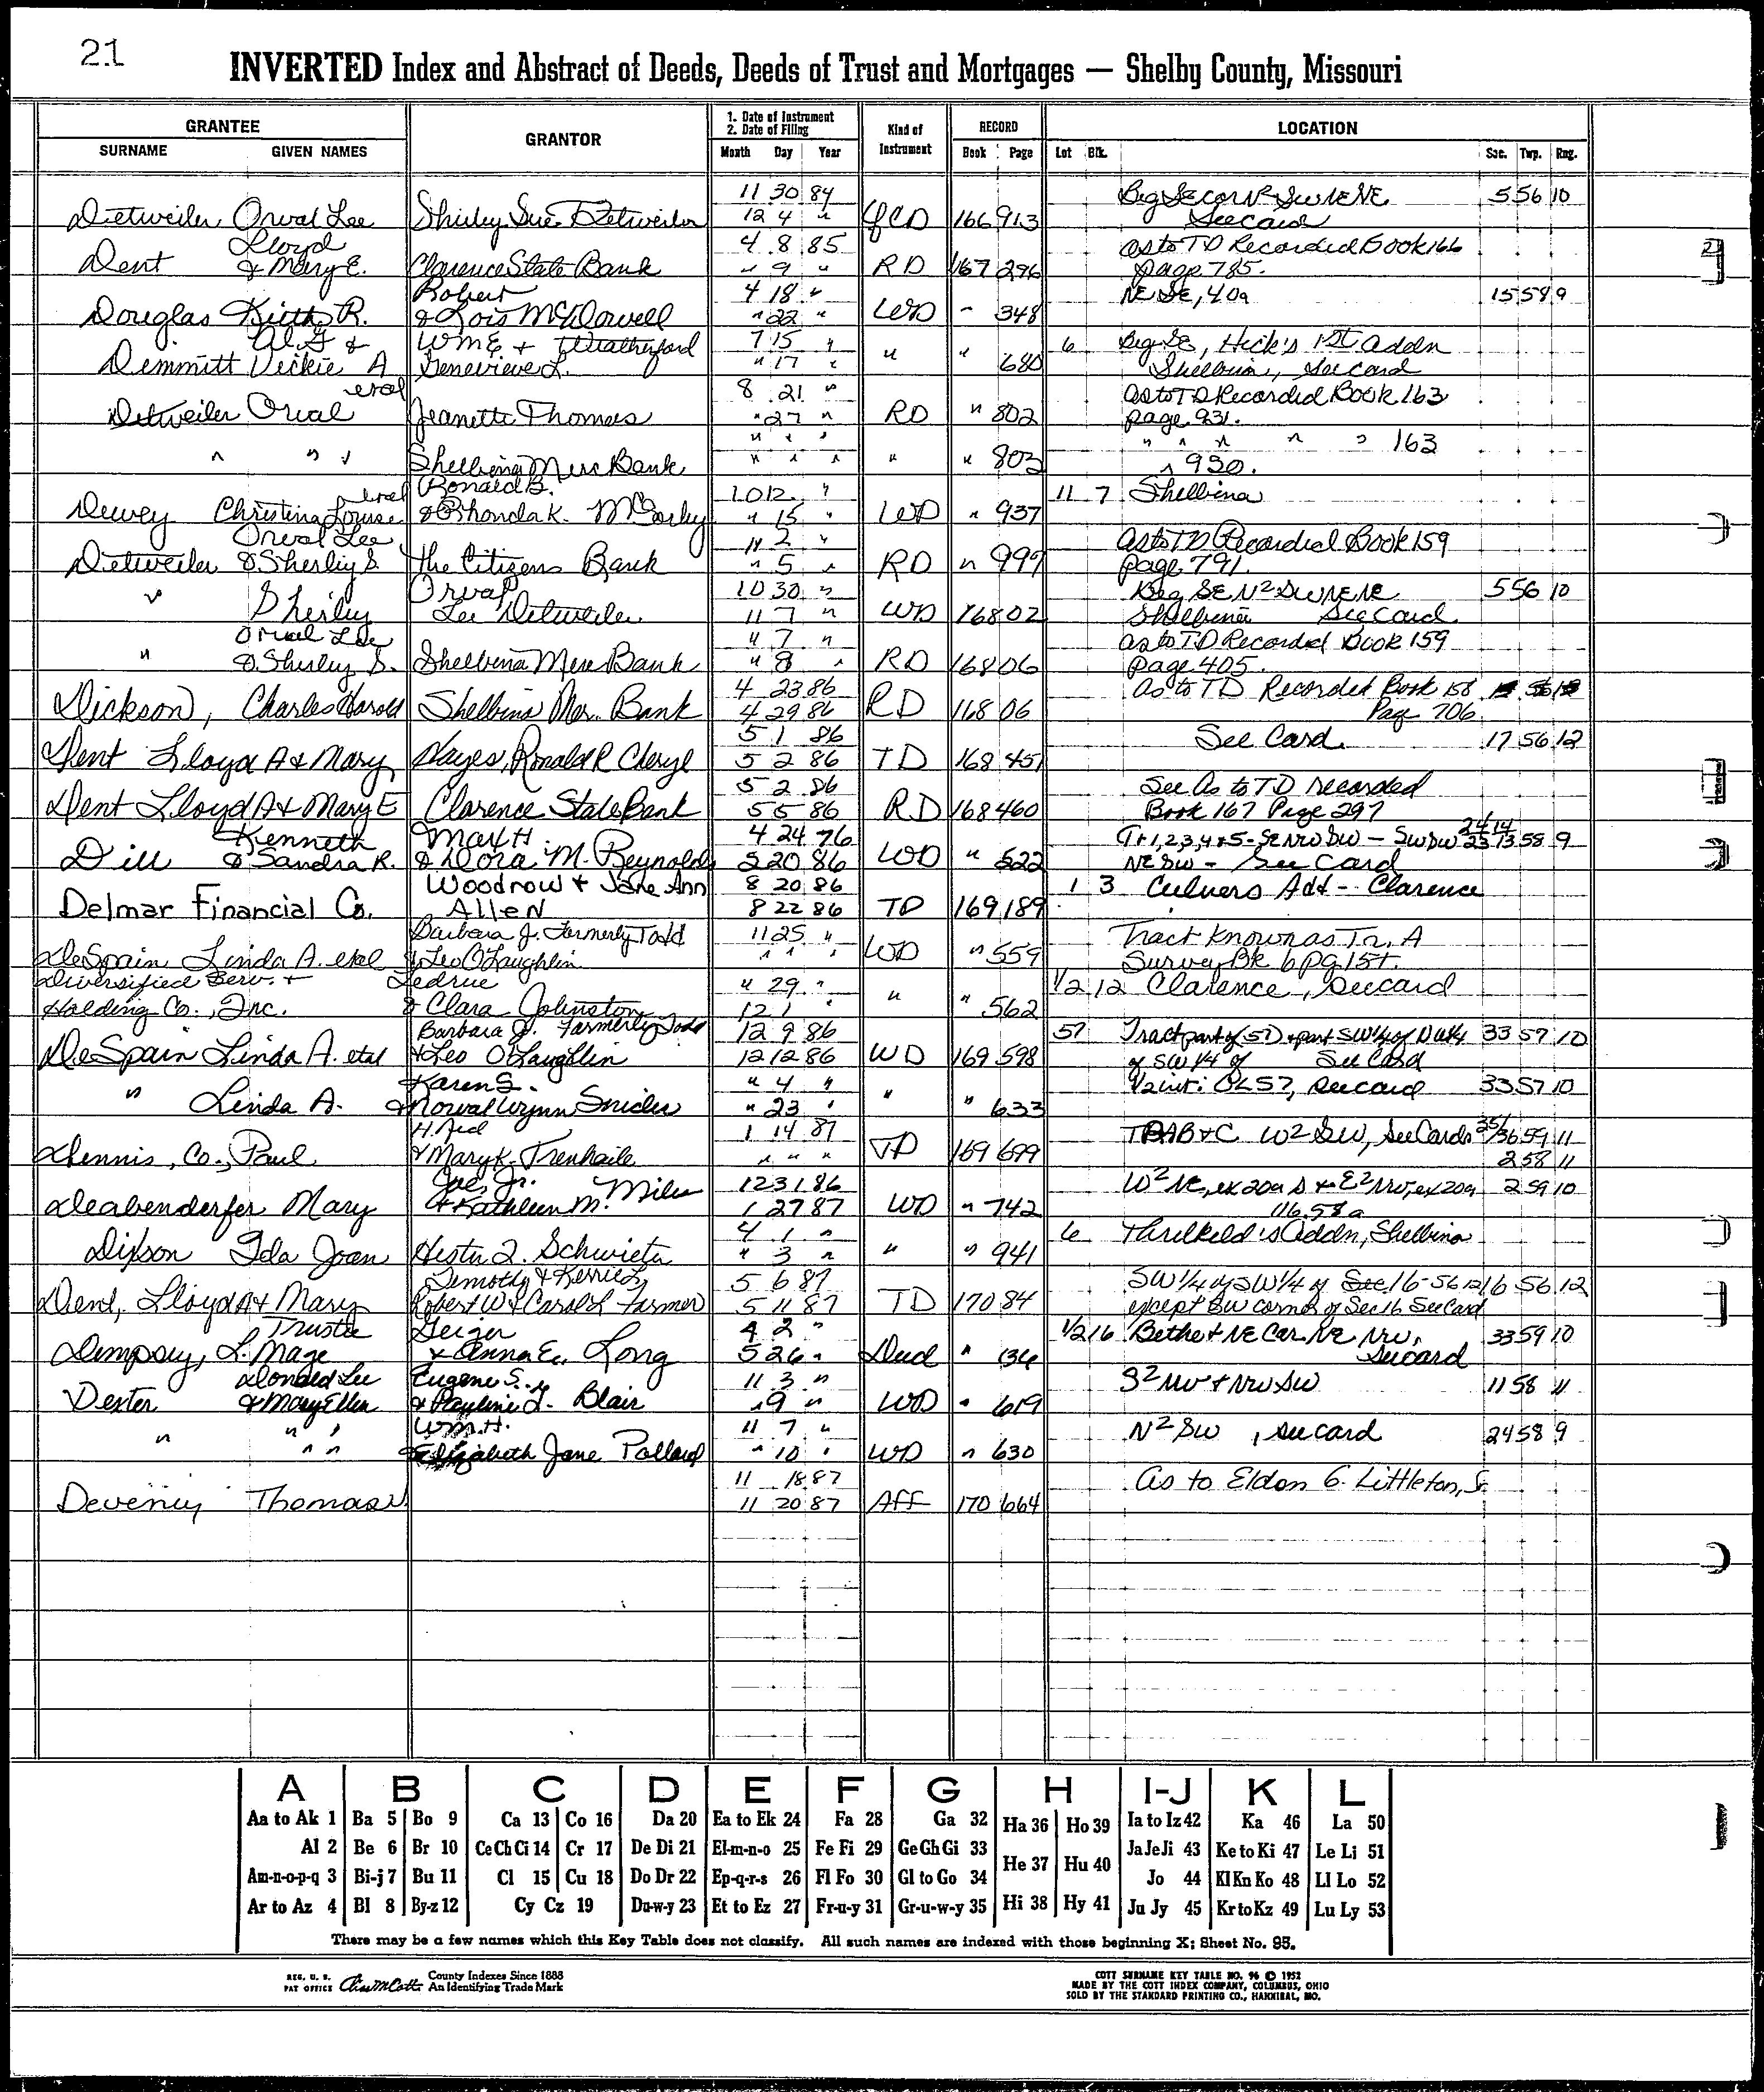 21
INVERTED Index and Abstract of Deeds, Deeds of Trust and Mortgages — Shelby County, Missouri
GRANTEE GRANTOR 1. Date of Instrument 2. Date of Filing Kind of Instrument RECORD LOCATION
SURNAME GIVEN NAMES Month Day Year Book Page Lot Blk. Sec. Twp. Rng.
11 30 84 Beg SE cor N2 SW NE NE 5 56 10
Detweiler Orval Lee Shirley Sue Detweiler 12 4 " QCD 166 913 See card
Lloyd 4 8 85 as to TD Recorded Book 166
Dent & Mary E. Clarence State Bank " 9 " RD 167 296 page 785.
Robert 4 18 " NE SE, 40a 15 58 9
Douglas Keith R. & Lois McDowell " 22 " WD " 348
Al G & Wm E & Weatherford 7 15 " 6 Beg SE, Heck's 1st addn
Demmitt Vickie A Genevieve L. " 17 " " " 680 Shelbina, See card
etal 8 21 " as to TD Recorded Book 163
Detweiler Orval Jeanette Thomas " 27 " RD " 802 page 931.
" " " " " " " " " " " 163
Shelbina Merc Bank " " " " " 803 " 930.
etal Ronald B. 10 12 " 11 7 Shelbina
Dewey Christina Louise & Rhonda K. McCarley " 15 " WD " 937
Orval Lee 11 2 " as to TD Recorded Book 159
Detweiler & Sherley S The Citizens Bank " 5 " RD " 999 page 791.
" Orval 10 30 " Beg SE N2 SW NE NE 5 56 10
Shirley Lee Detweiler 11 7 " WD 168 02 Shelbina See Card.
Orval Lee " 7 " as to TD Recorded Book 159
" & Shirley S. Shelbina Merc Bank " 8 " RD 168 06 page 405.
4 23 86 As to TD Recorded Book 158
Dickson, Charles Harold Shelbina Mer. Bank 4 29 86 RD 168 06 Page 706
5 1 86 See Card. 17 56 12
Dent Lloyd A & Mary Hayes, Ronald R Cheryl 5 2 86 TD 168 451
5 2 86 See As to TD recorded
Dent Lloyd A & Mary E Clarence State Bank 5 5 86 RD 168 460 Book 167 Page 297
Kenneth Max H 4 24 76 Tr 1,2,3,4 & 5 - SE NW SW - SW SW 23 13 58 9
24 14
Dill & Sandra R. & Dora M. Reynolds 5 20 86 WD " 522 NE SW - See Card
Woodrow & Jane Ann 8 20 86 1 3 Culvers Add - Clarence
Delmar Financial Co. Allen 8 22 86 TD 169 189
Barbara J. Formerly Todd 11 25 " Tract Known as Tr. A
DeSpain Linda A. etal & Leo O'Laughlin " " " WD " 559 Survey Bk 6 pg 15+.
Diversified Serv. & Ledrue " 29 " 1/2 12 Clarence, See card
Holding Co., Inc. & Clara Johnston 12 1 " " " 562
Barbara J. Formerly Todd 12 9 86 57 Tract part of 57 & part SW 1/4 of NW 1/4 33 57 10
DeSpain Linda A. etal & Leo O'Laughlin 12 12 86 WD 169 598 of SW 1/4 of See Card
Karen S. " 4 " 1/2 int: OL 57, See card 33 57 10
" Linda A. & Noval Wynn Snider " 23 " " " 633
H. Acel 1 14 87 W2 SW, See Cards 36 59 11
Dennis, Co., Paul & Mary K. Trenhaile " " " TD 169 699 2 58 11
Joe, Jr. 12 31 86 W2 NE, ex 20a S & E2 NW, ex 20a 2 59 10
Deabenderfer Mary & Kathleen M. Miles 1 27 87 WD " 742 116.58 a
4 1 " 6 Threlkeld's Addn, Shelbina
Dixson Ida Joan Hester L. Schwieter " 3 " " " 941
Timothy & Kerrie L 5 6 87 SW 1/4 of SW 1/4 of Sec. 16-56-12 16 56 12
Dent, Lloyd A & Mary Robert W & Carol L Farmer 5 11 87 TD 170 84 except SW corner of Sec 16 See Card
Trustee Geiger 4 2 " 1/2 16 Bethel & NE Cor. NE NW, 33 59 10
Dempsey, L. Mage & Anna E. Long 5 26 " Deed " 136 See card
Donald Lee Eugene S. 11 3 " S2 NW & NW SW 11 58 11
Dexter & Mary Ellen & Pauline L. Blair " 9 " WD " 619
" " " Wm. H. 11 7 " N2 SW, See card 24 58 9
" " & Elizabeth Jane Pollard " 10 " WD " 630
11 18 87 As to Eldon G. Littleton, Sr.
Deveney Thomas 11 20 87 AFF 170 664
A B C D E F G H I-J K L
Aa to Ak 1 Ba 5 Bo 9 Ca 13 Co 16 Da 20 Ea to Ek 24 Fa 28 Ga 32 Ha 36 Ho 39 Ia to Iz 42 Ka 46 La 50
Al 2 Be 6 Br 10 Ce Ch Ci 14 Cr 17 De Di 21 El-m-n-o 25 Fe Fi 29 Ge Gh Gi 33 He 37 Hu 40 Ja Je Ji 43 Ke to Ki 47 Le Li 51
Am-n-o-p-q 3 Bi-j 7 Bu 11 Cl 15 Cu 18 Do Dr 22 Ep-q-r-s 26 Fl Fo 30 Gl to Go 34 Jo 44 Kl Kn Ko 48 Ll Lo 52
Ar to Az 4 Bl 8 By-z 12 Cy Cz 19 Du-w-y 23 Et to Ez 27 Fr-u-y 31 Gr-u-w-y 35 Hi 38 Hy 41 Ju Jy 45 Kr to Kz 49 Lu Ly 53
There may be a few names which this Key Table does not classify. All such names are indexed with those beginning X; Sheet No. 95.
REG. U. S. PAT OFFICE County Indexes Since 1888 An Identifying Trade Mark
COTT SURNAME KEY TABLE NO. 96 © 1952
MADE BY THE COTT INDEX COMPANY, COLUMBUS, OHIO
SOLD BY THE STANDARD PRINTING CO., HANNIBAL, MO.